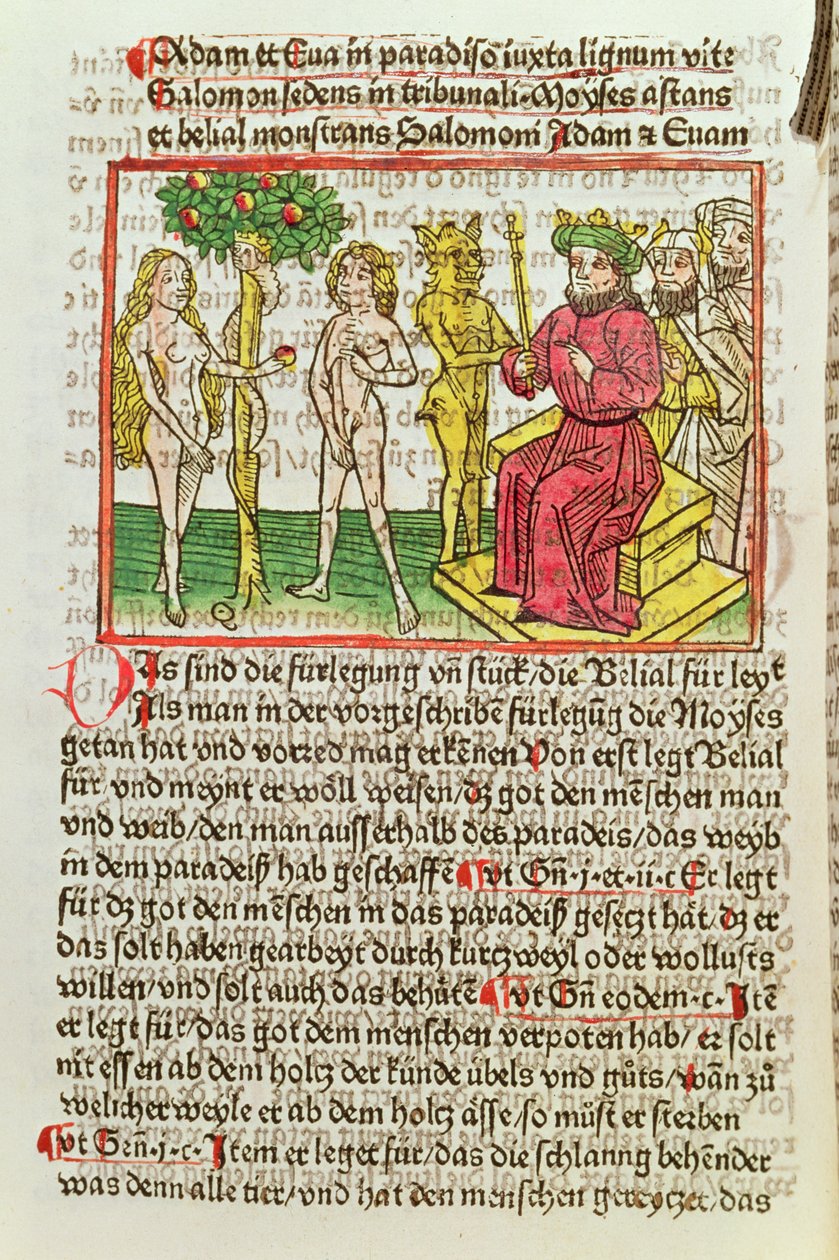 Adam et Eua in paradiso iuxta lignum vite
Salomon sedens in tribunali·Moyses astans
et belial monstrans Salomoni Adam ⁊ Euam
DAs sind die fürlegung vñ stück/die Belial für leyt
Als man in der vorgeschribẽ fürlegũg die Moyses
getan hat vnd vorred mag erkẽnen Von erst legt Belial
für/vnd meynt er wöll weisen/dz got den mẽschen man
vnd weib/den man ausserhalb des paradeis/das weyb
in dem paradeiß hab geschaffẽ vt Gñ·j·et·ii·c Er legt
für dz got den mẽschen in das paradeiß gesetzt hat/dz er
das solt haben gearbeyt durch kurtzweyl oder wollusts
willen/vnd solt auch das behůtẽ vt Gñ eodem·c·Jtẽ
er legt für/das got dem menschen verpoten hab/er solt
nit essen ab dem holtz der künde übels vnd gůts/wãn zů
welicher weyle er ab dem holtz ässe/so můst er sterben
vt Geñ·j·c·Jtem er leget für/das die schlanng behẽnder
was denn alle tier/vnd hat den menschen gereytzet/das